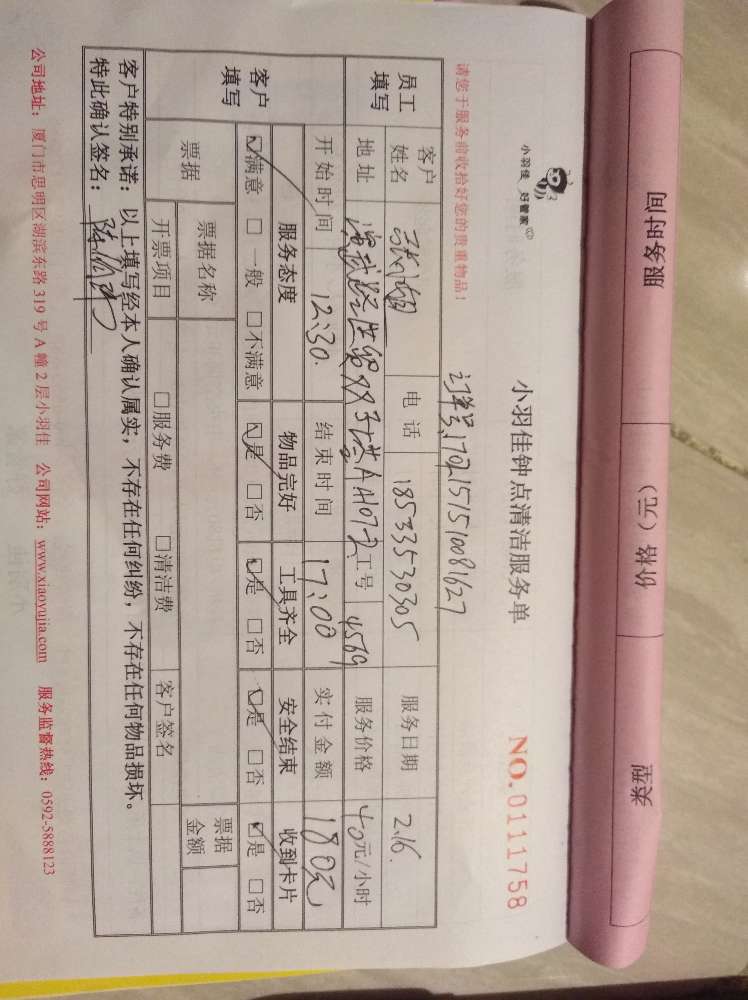 服务时间 价格（元） 类型
小羽佳 好管家
小羽佳钟点清洁服务单
NO.0111758
订单号1702151510081627
请您于服务前收拾好您的贵重物品！
员工填写 客户姓名 电话 18533530305 服务日期 2.16.
地址 A1107-2 工号 4569 服务价格 40元/小时
开始时间 12:30. 结束时间 17:00 实付金额 180元
客户填写 服务态度 物品完好 工具齐全 安全结束 收到卡片
☑满意 □一般 □不满意 ☑是 □否 ☑是 □否 ☑是 □否 ☑是 □否
票据 票据名称 票据金额
开票项目 □服务费 □清洁费 客户签名
客户特别承诺：以上填写经本人确认属实，不存在任何纠纷，不存在任何物品损坏。
特此确认签名：
公司地址：厦门市思明区湖滨东路 319 号 A 幢 2 层小羽佳 公司网站：www.xiaoyujia.com 服务监督热线：0592-5888123